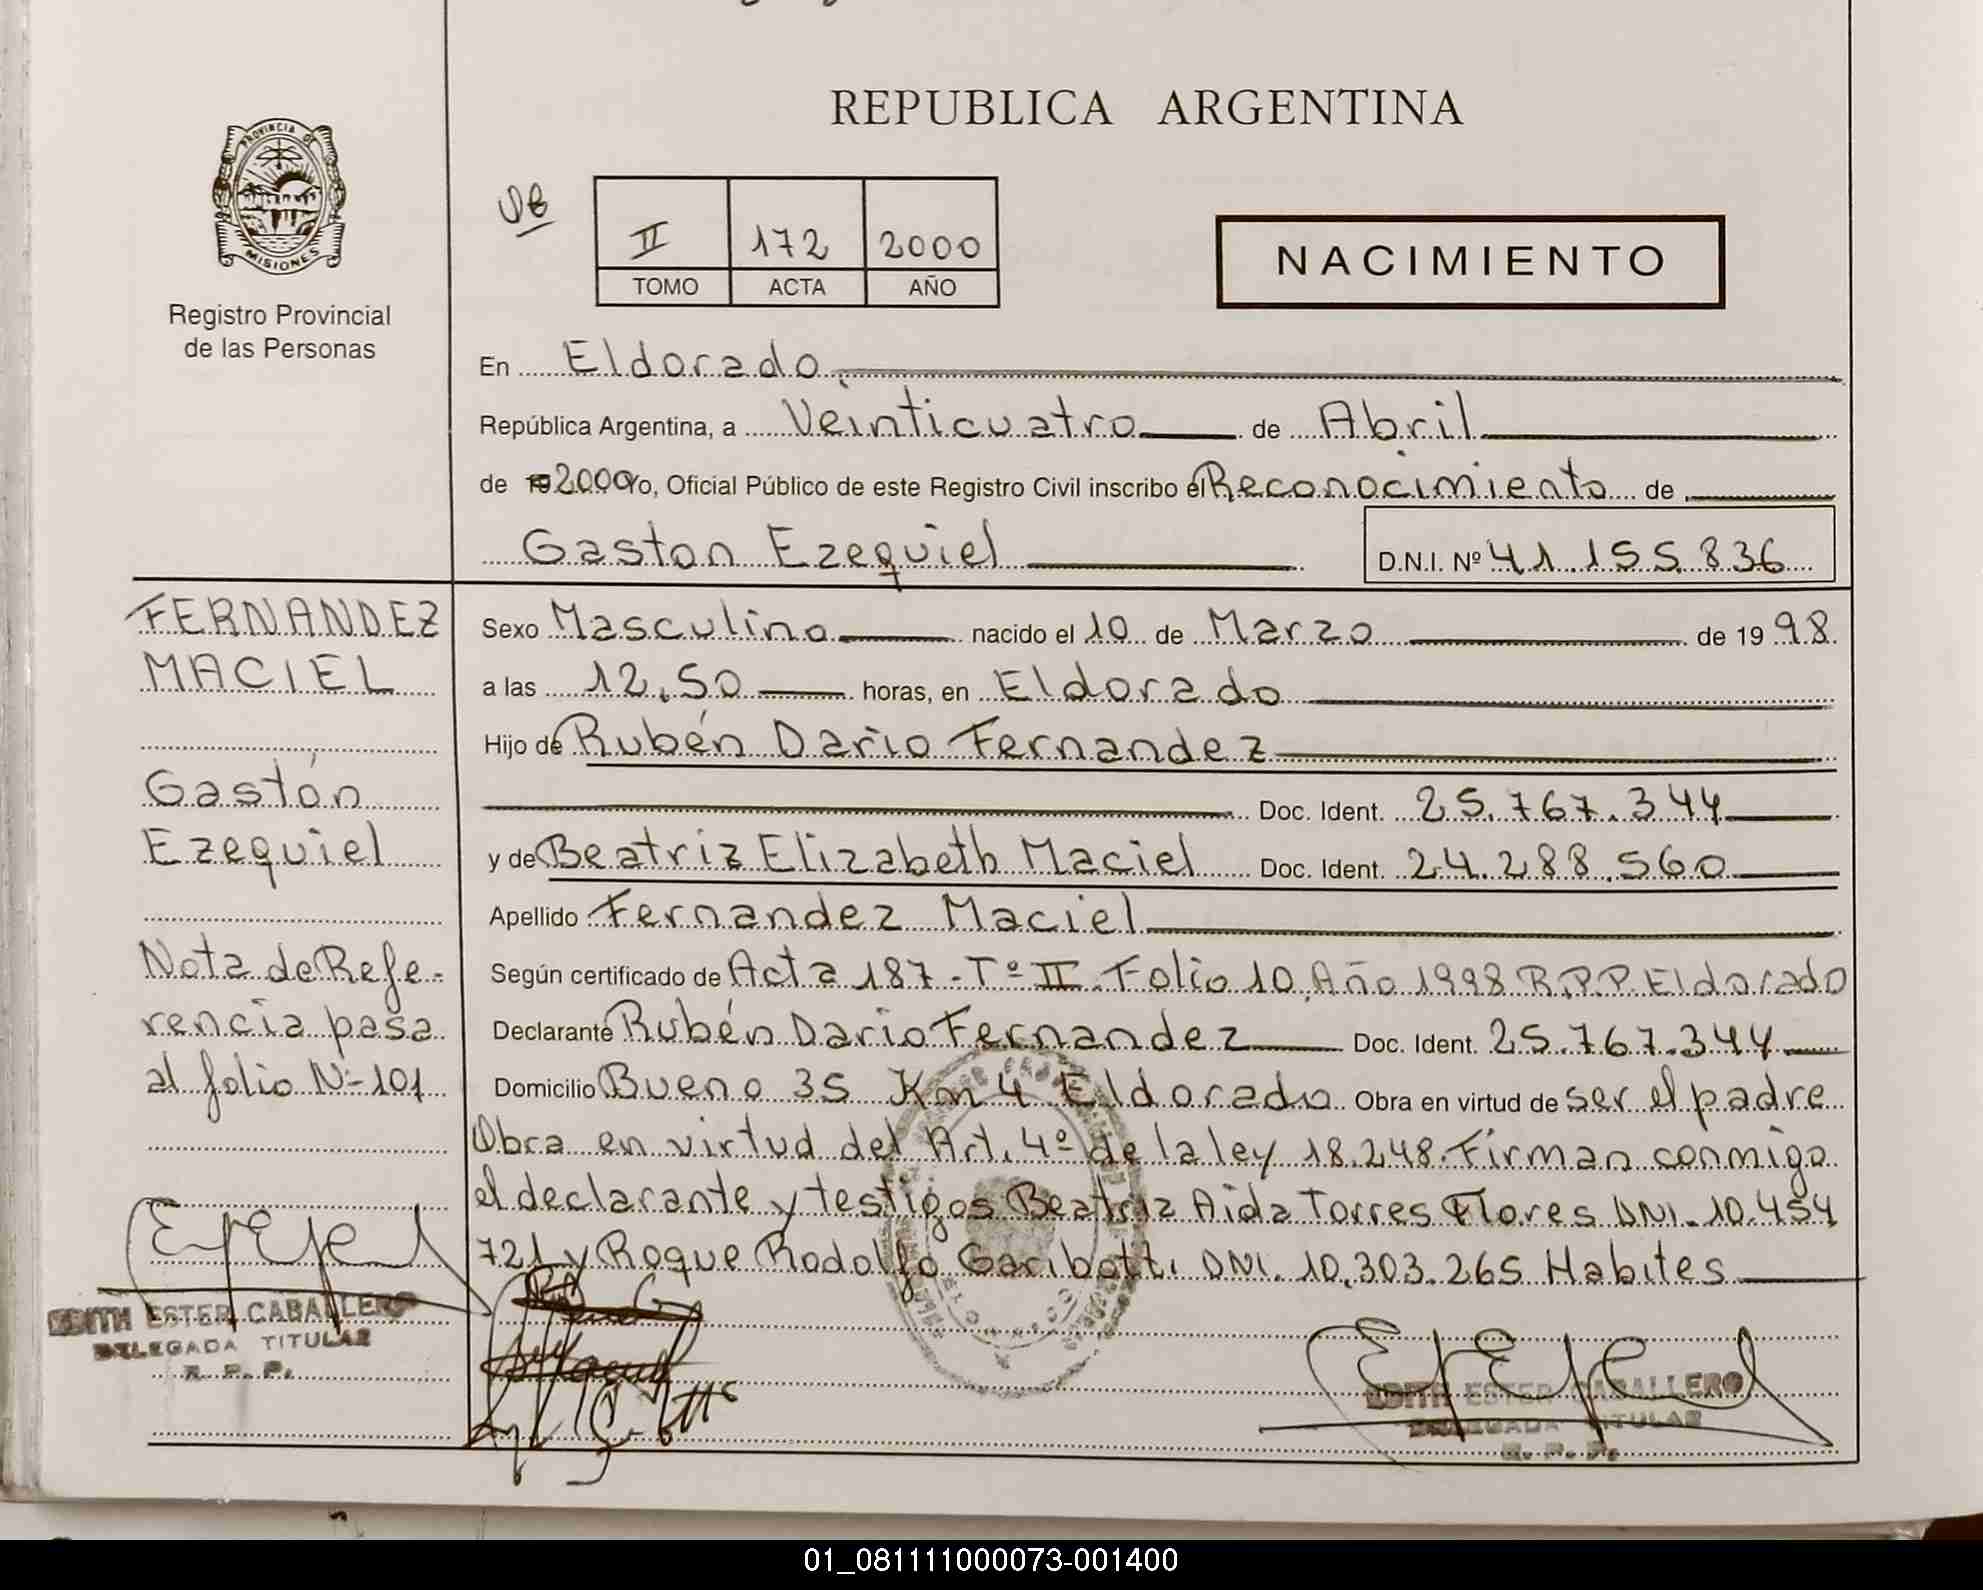 REPUBLICA ARGENTINA
PROVINCIA DE
MISIONES
Registro Provincial
de las Personas
II 172 2000
TOMO ACTA AÑO
NACIMIENTO
En Eldorado
República Argentina, a Veinticuatro de Abril
de 2000 Yo, Oficial Público de este Registro Civil inscribo el Reconocimiento de
Gaston Ezequiel D.N.I. Nº 41.155.836
FERNANDEZ
MACIEL
Gastón
Ezequiel
Nota de Refe-
rencia pasa
al folio Nº 101
Sexo Masculino nacido el 10 de Marzo de 1998.
a las 12,50 horas, en Eldorado
Hijo de Rubén Dario Fernandez
Doc. Ident. 25.767.344
y de Beatriz Elizabeth Maciel Doc. Ident. 24.288.560
Apellido Fernandez Maciel
Según certificado de Acta 187 - Tº II. Folio 10, Año 1998 R.P.P. Eldorado
Declarante Rubén Dario Fernandez Doc. Ident. 25.767.344
Domicilio Bueno 35 Km 4 Eldorado Obra en virtud de ser el padre
Obra en virtud del Art. 4º de la ley 18.248. Firman conmigo
el declarante y testigos Beatriz Aida Torres Flores DNI. 10.454
721 y Roque Rodolfo Garibotti DNI. 10.303.265 Habites
EDITH ESTER CABALLERO
DELEGADA TITULAR
R. P. P.
EDITH ESTER CABALLERO
DELEGADA TITULAR
R. P. P.
01_081111000073-001400